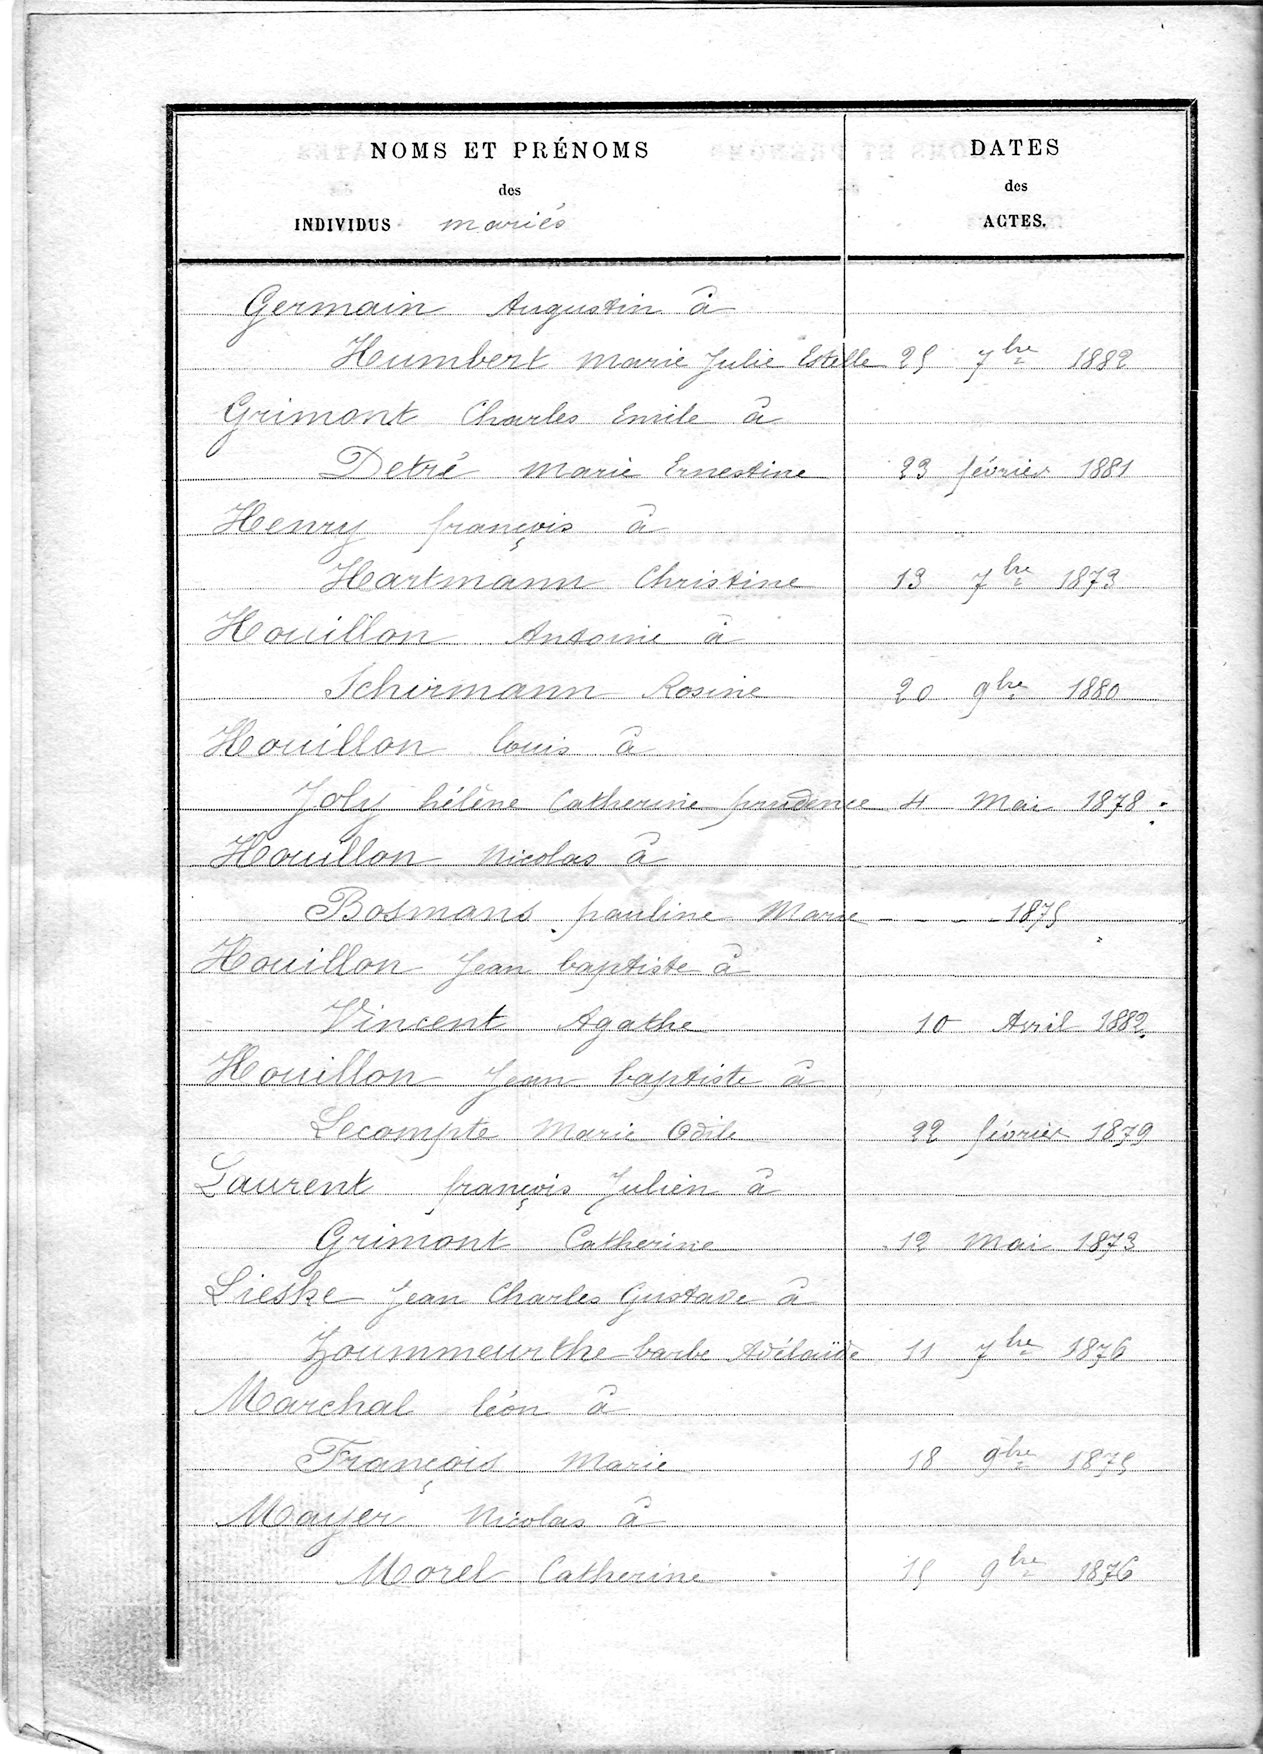 NOMS ET PRÉNOMS
des
INDIVIDUS mariés
DATES
des
ACTES.
Germain Augustin à
Humbert Marie Julie Estelle 25 7bre 1882
Grimont Charles Emile à
Detré Marie Ernestine 23 février 1881
Henry françois à
Hartmann Christine 13 7bre 1873
Houillon Antoine à
Schirmann Rosine 20 9bre 1880
Houillon louis à
Joly hélène Catherine prudence 4 Mai 1878.
Houillon Nicolas à
Bosmans pauline Marie - - - - 1875
Houillon Jean baptiste à
Vincent Agathe 10 Avril 1882.
Houillon Jean baptiste à
Lecompte Marie Odile 22 février 1879
Laurent françois Julien à
Grimont Catherine 12 Mai 1873
Lieske Jean Charles Gustave à
Zoummeurthe barbe Adélaïde 11 7bre 1876
Marchal léon à
François Marie 18 9bre 1875
Mayer Nicolas à
Morel Catherine 15 9bre 1876